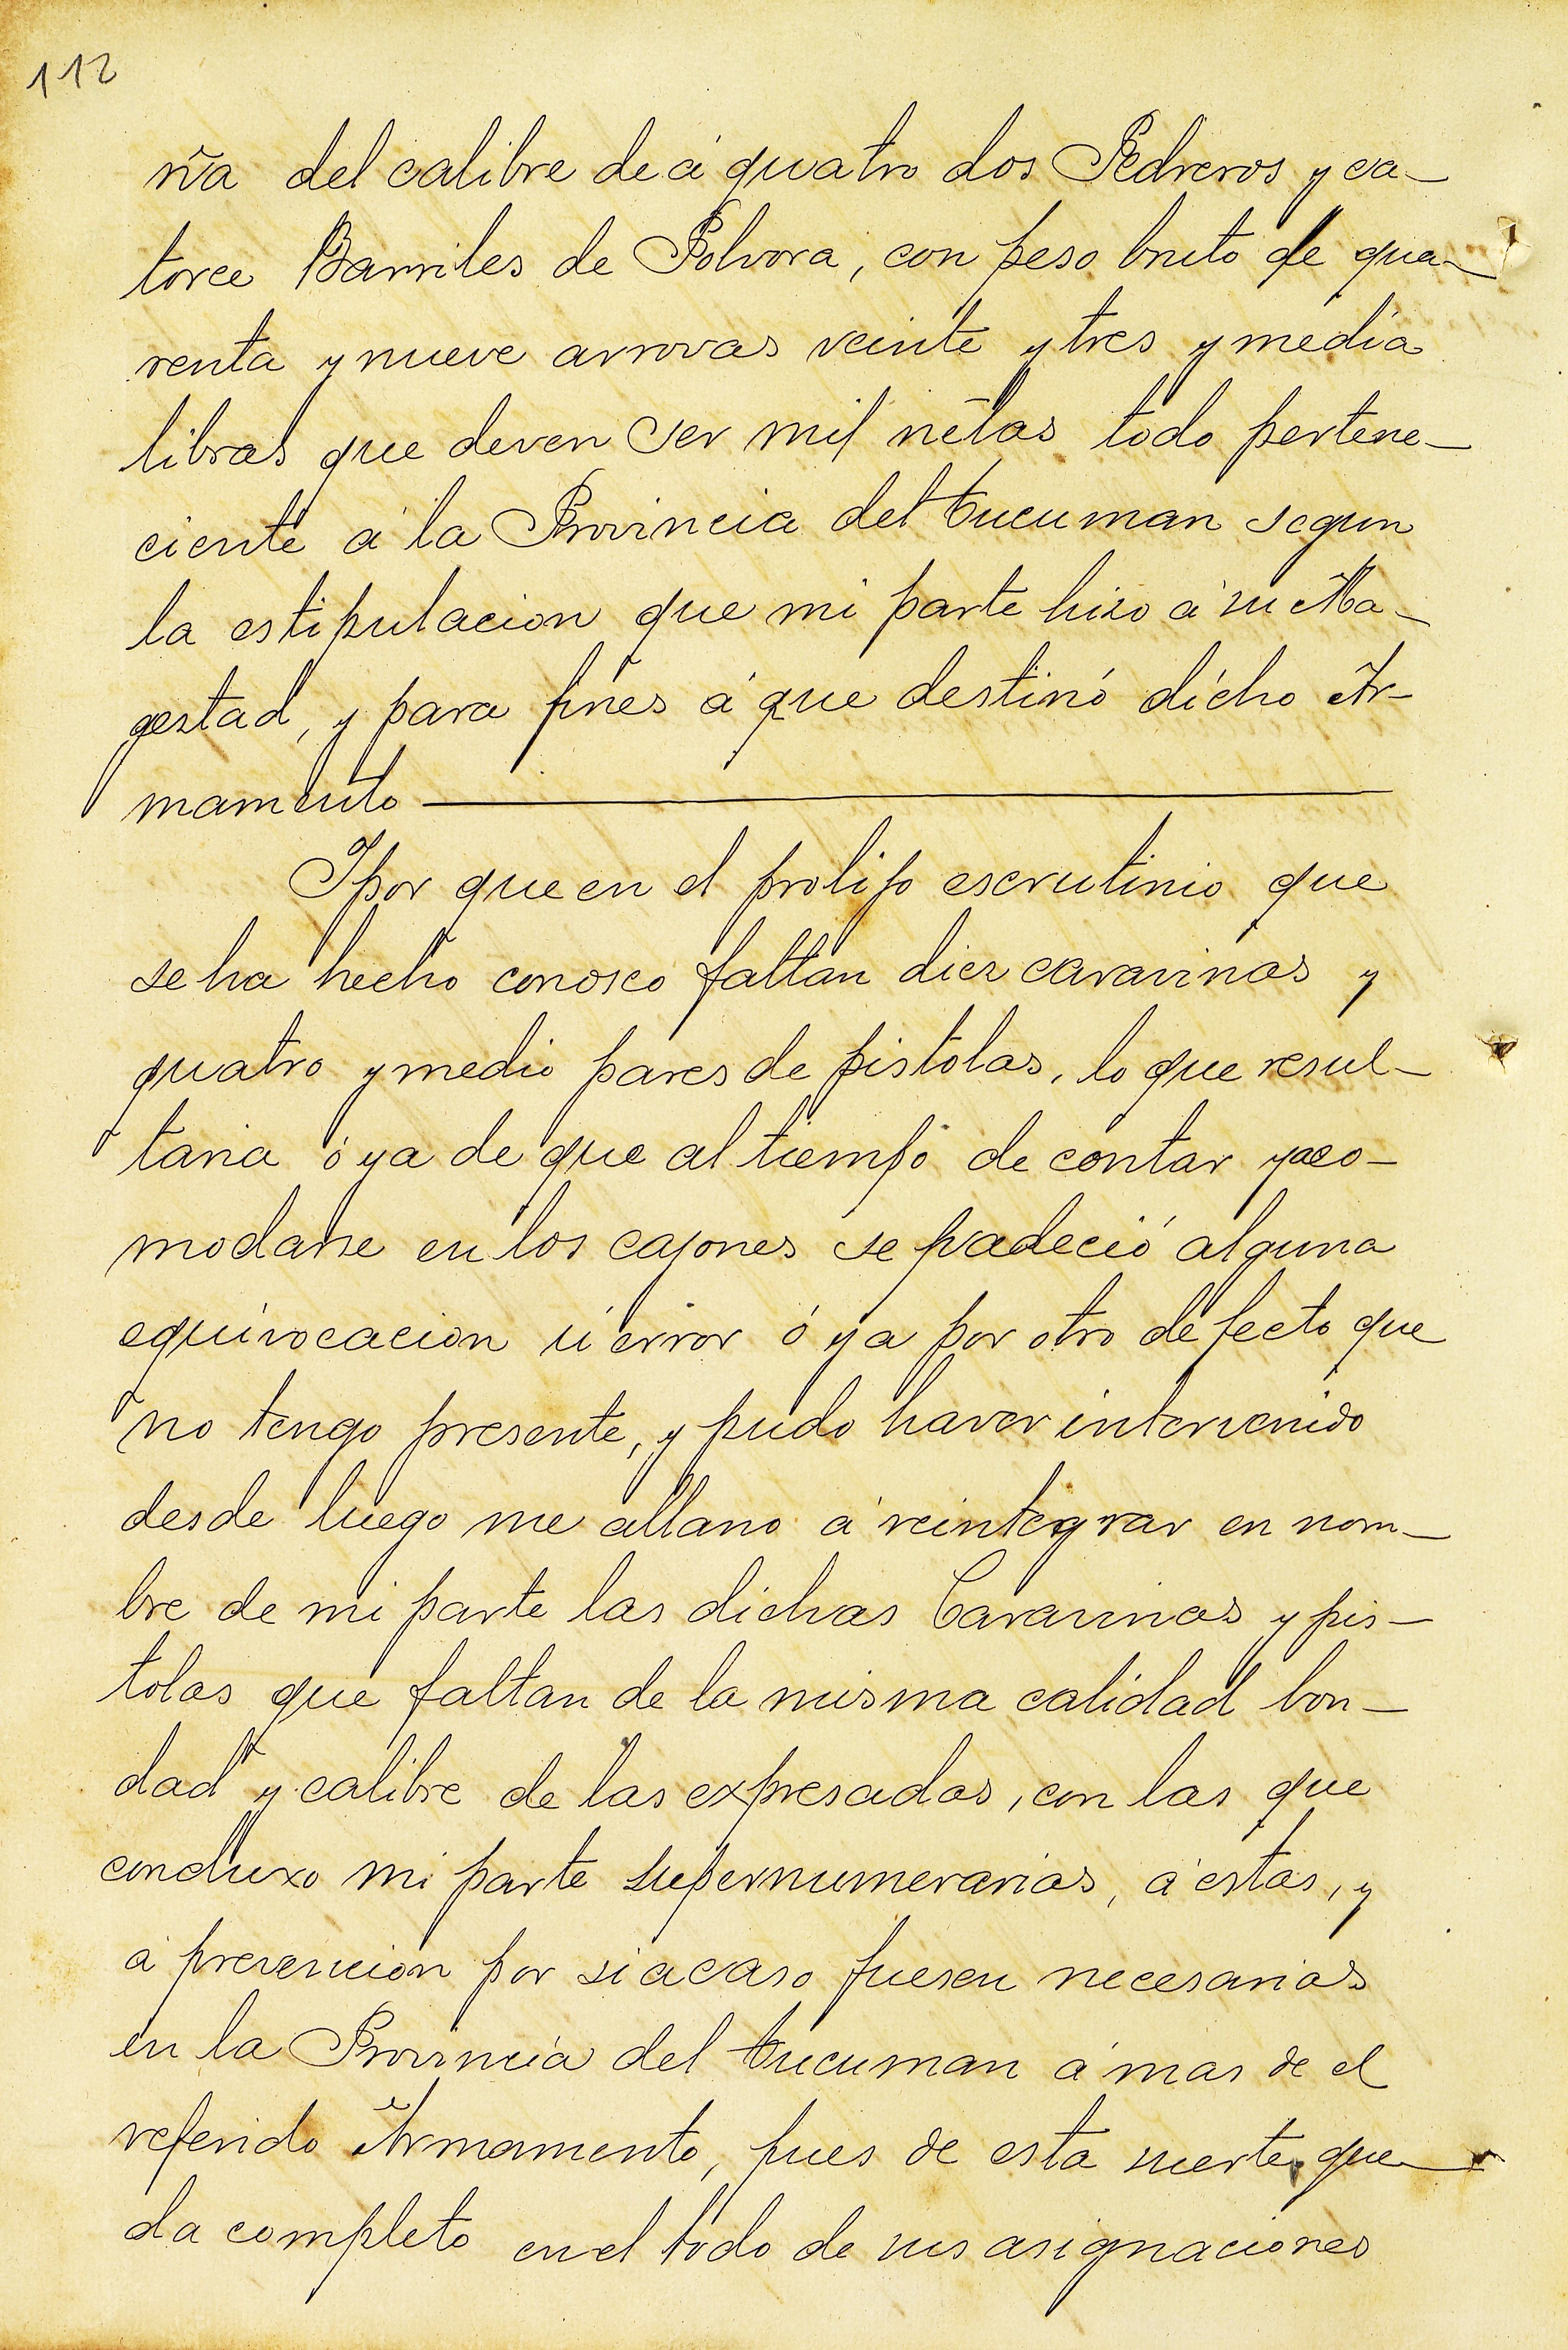 112
ña del calibre de á quatro dos Pedreros y ca-
torce Barriles de Polvora, con peso bruto de qua-
renta y nueve arrovas veinte y tres y media
libras que deven ser mil netas todo pertene-
ciente á la Provincia del tucuman segun
la estipulacion que mi parte hizo á su Ma-
gestad, y para fines á que destinó dicho Ar-
mamento
Y por que en el prolijo escrutinio que
se ha hecho conosco faltan diez caravinas y
quatro y medio pares de pistolas, lo que resul-
taria ó ya de que al tiempo de contar y aco-
modarse en los cajones se padeció alguna
equivocacion ú error ó ya por otro defecto que
no tengo presente, y pudo haver intervenido
desde luego me allano á reintegrar en nom-
bre de mi parte las dichas Caravinas y pis-
tolas que faltan de la misma calidad bon-
dad y calibre de las expresadas, con las que
conduxo mi parte supernumerarias, á estas, y
á prevencion por si acaso fuesen necesarias
en la Provincia del tucuman á mas de el
referido Armamento, pues de esta suerte que-
da completo en el todo de sus asignaciones